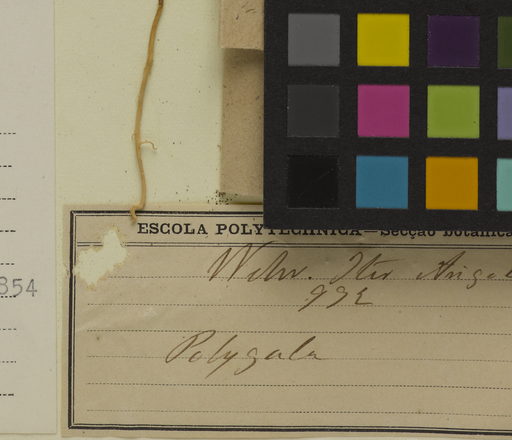 ESCOLA POLYTECHNICA — Secção botanica
Welw. Iter Angol
992
Polygala
854